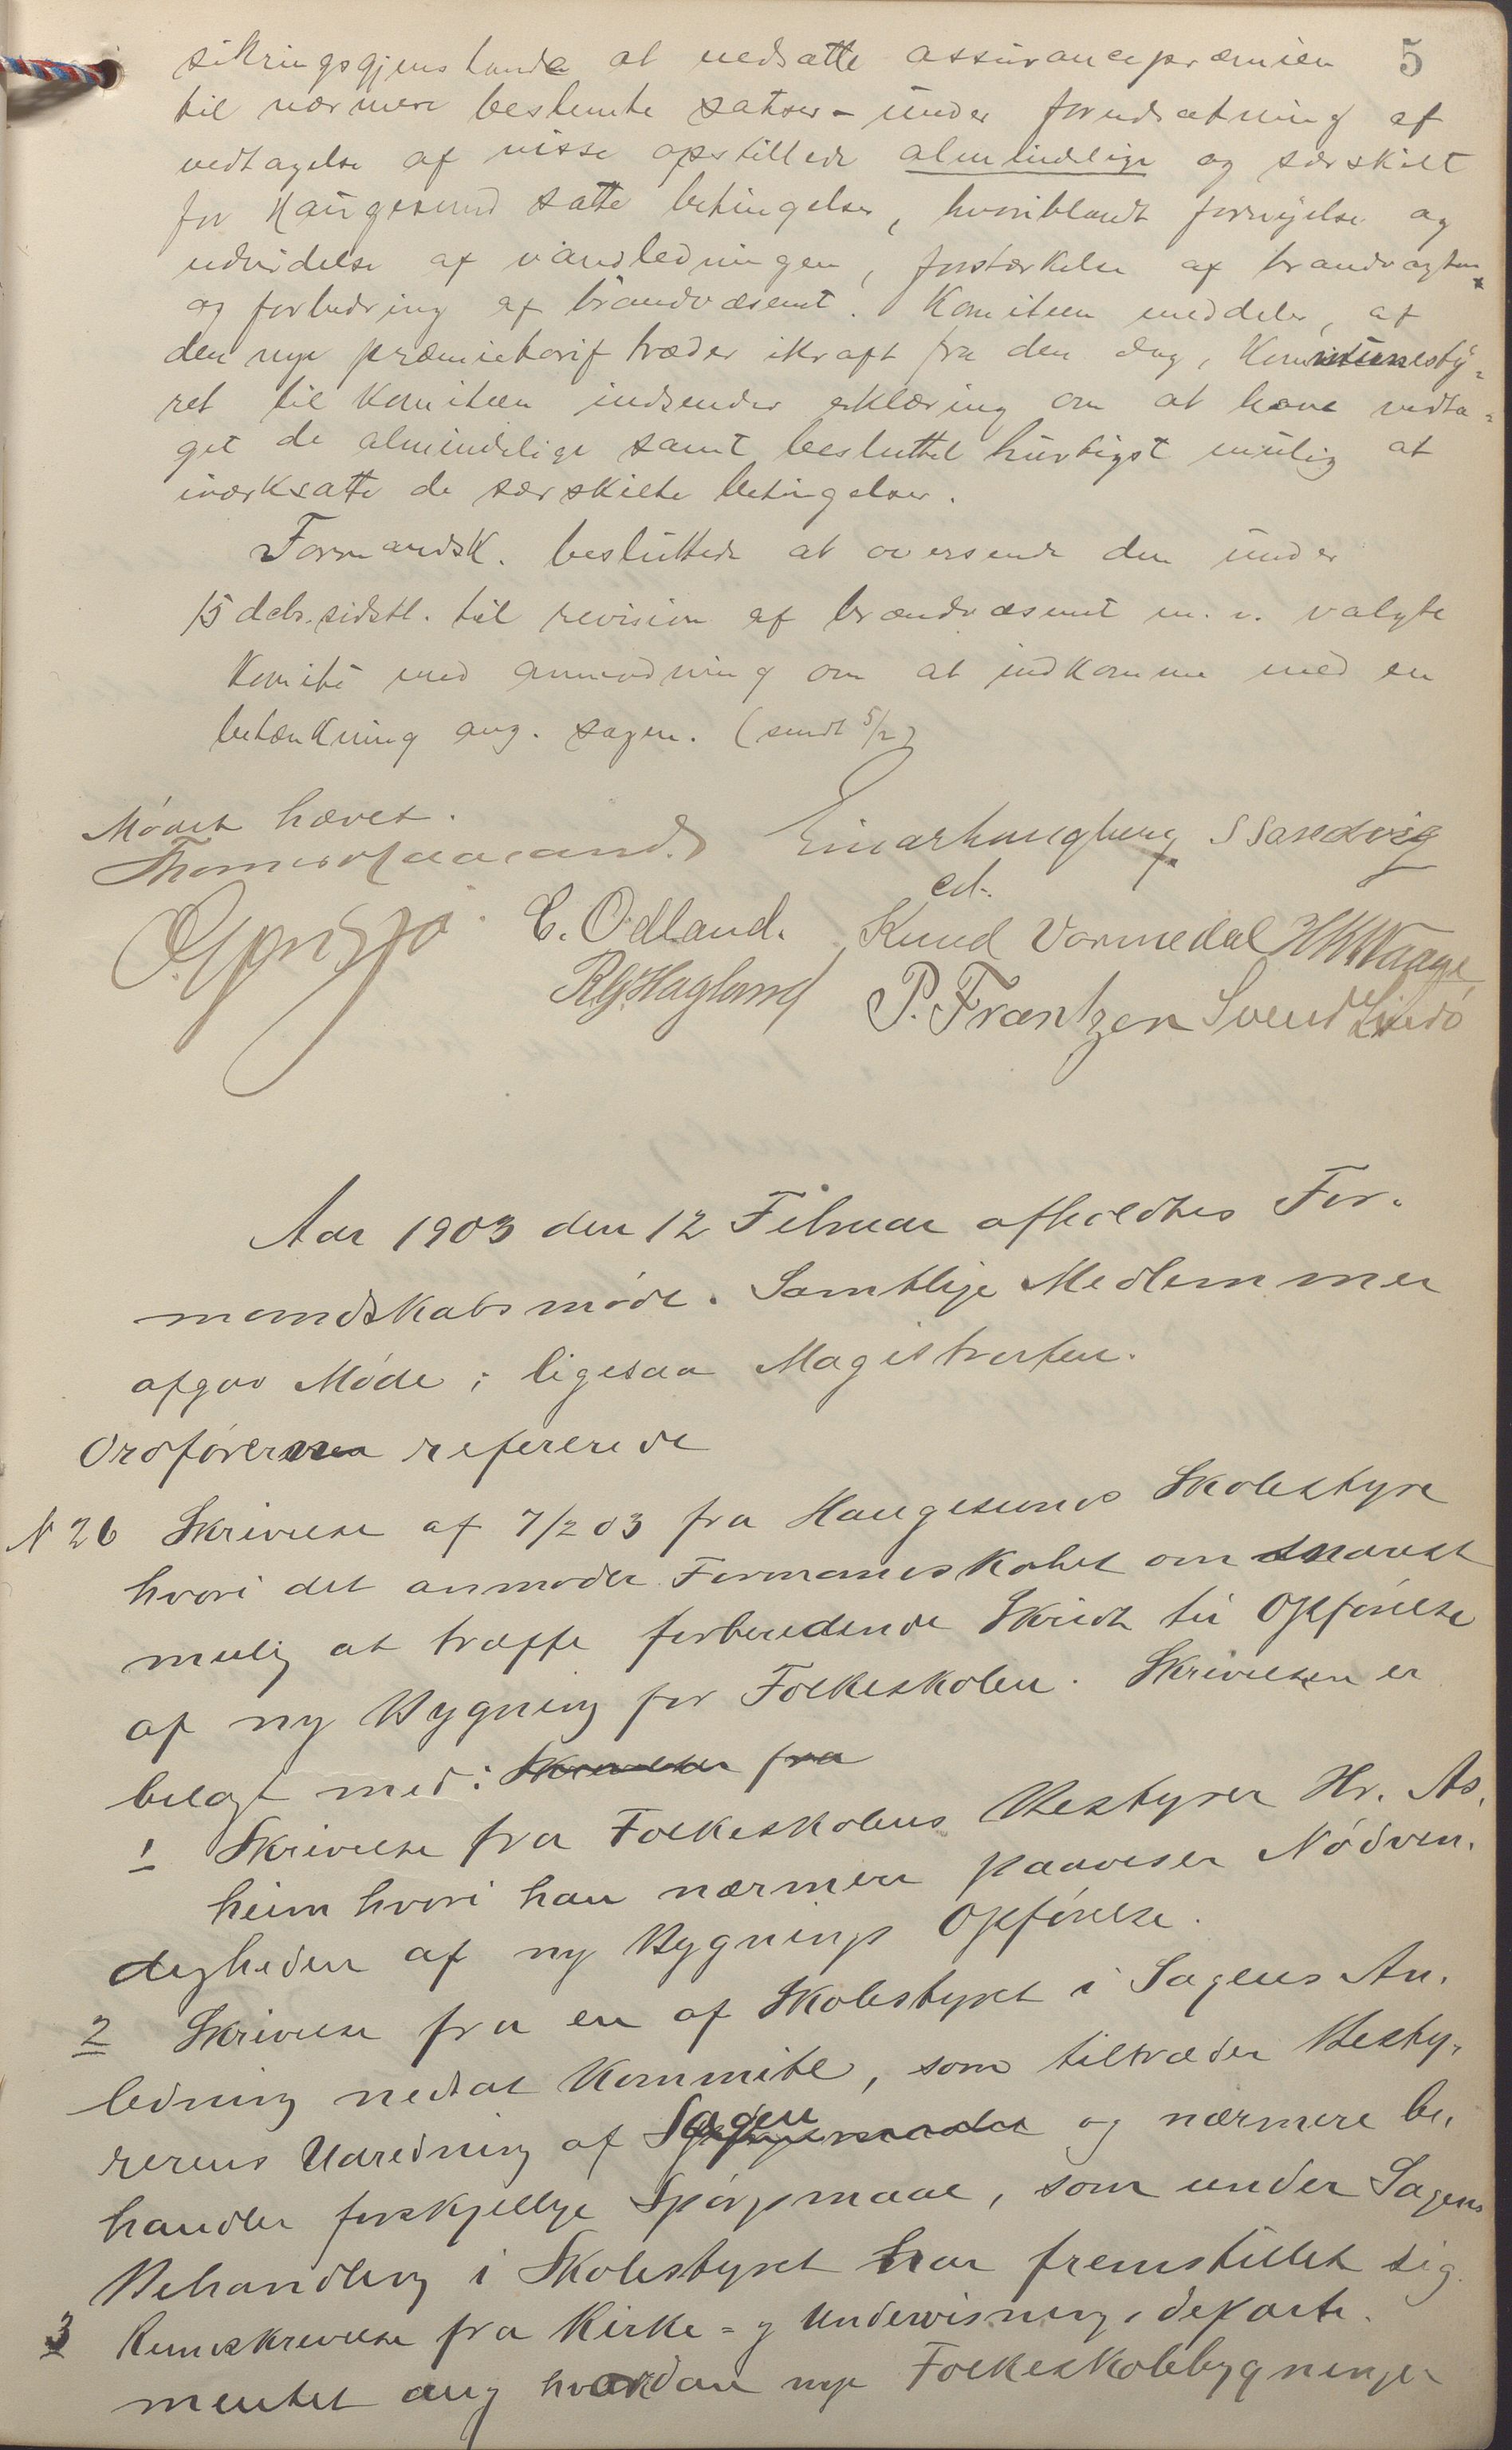 5
sikringsgjenstande at nedsætte assurancepræmien
til nærmere bestemte satser - under forudsætning af
vedtagelse af visse opstillede almindelige og særskilt
for Haugesund satte betingelser, hvoriblandt fornyelse og
udvidelse af vandledningen, forstærkelse af brandvagten
og forbedring af brandvæsenet. Komiteen meddeler, at
den nye præmietarif træder ikraft fra den dag, Kommunesty=
ret til Komiteen indsender erklæring om at have vedta=
get de almindelige samt besluttet hurtigst mulig at
iværksætte de særskilte betingelser.
Formandsk. besluttede at oversende den under
15 debr. sidstl. til revision af brandvæsenet m. v. valgte
Komite med anmodning om at indkomme med en
betænkning ang. sagen. (sendt 5/2)
Mødet hævet.
Einar Haugberg S Sandvig
C. Odland. Knud Vormedal H H Waage
R G Haglund P. Frantzen Svend Lindø
Aar 1903 den 12 Februar afholdtes For-
mandskabsmøde. Samtlige Medlemmer
afgav Møde; ligesaa Magistraten.
Ordføreren refererede
N 26 Skrivelse af 7/2 03 fra Haugesunds Skolestyre
hvori det anmoder Formandskabet om snarest
mulig at træffe forberedende Skridt til Opførelse
af ny Bygning for Folkeskolen. Skrivelsen er
belagt med: Skrivelse fra
1 Skrivelse fra Folkeskolens Bestyrer Hr. As-
heim hvori han nærmere paaviser Nødven-
digheden af ny Bygnings Opførelse.
2 Skrivelse fra en af Skolestyret i Sagens An-
ledning nedsat Kommite, som tiltræder Besty-
rerens Udredning af Sagen og nærmere be-
handler forskjellige Spørgsmaal, som under Sagens
Behandling i Skolestyret har fremstillet sig.
3 Rundskrivelse fra Kirke= og Undervisningsdeparte-
mentet ang hvordan nye Folkeskolebygninger